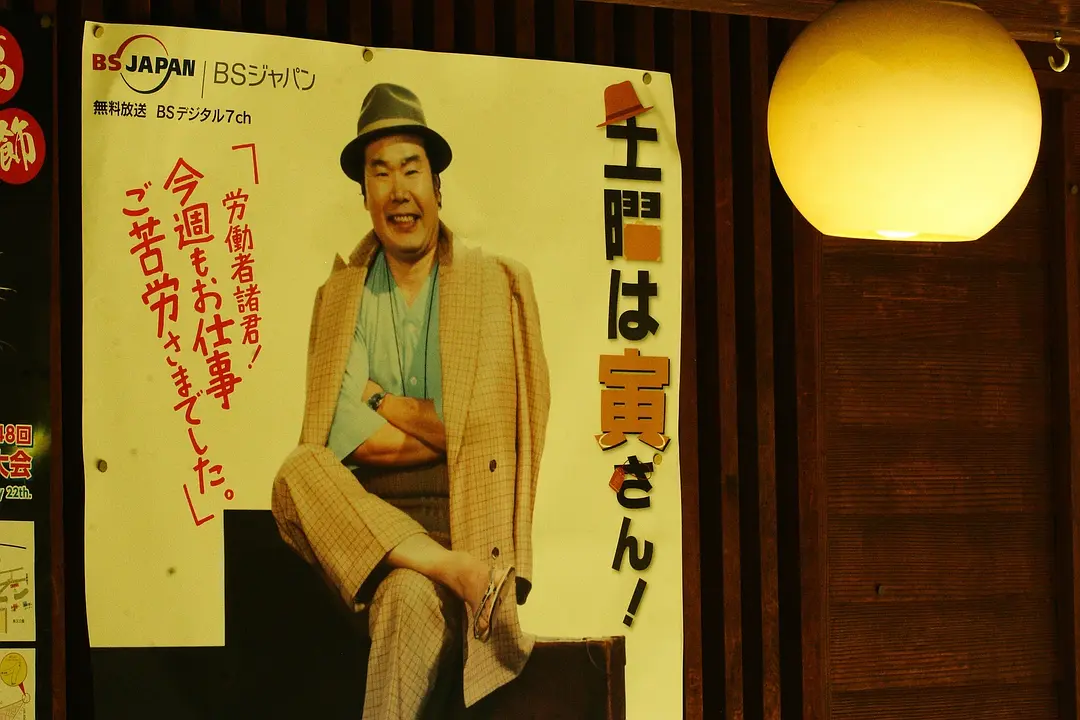 BS JAPAN
BSジャパン
無料放送 BSデジタル7ch
「労働者諸君!
今週もお仕事
ご苦労さまでした。」
土曜は寅さん!
節
48回
大会
22th.